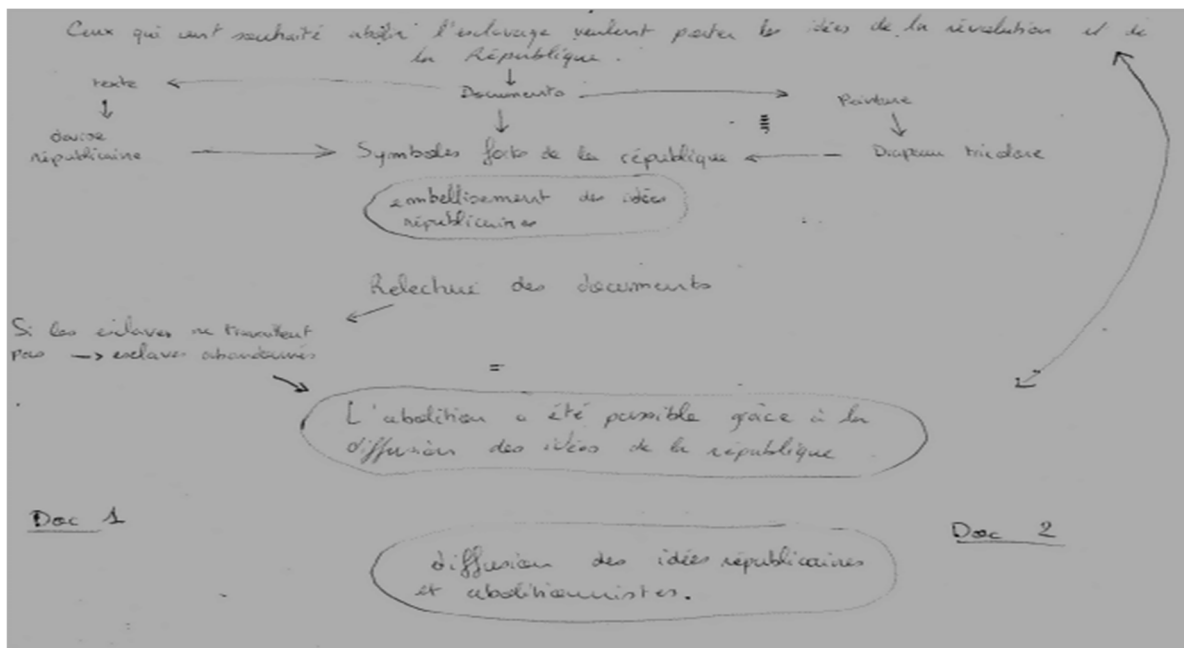 Ceux qui ont souhaité abolir l'esclavage veulent porter les idées de la révolution et de
la République.
texte
Documents
Peinture
devise
républicaine
Symboles forts de la république
Drapeau tricolore
embellisement des idées
républicaines
Relecture des documents
Si les esclaves ne travaillent
pas → esclaves abandonnés
=
L'abolition a été possible grâce à la
diffusion des idées de la république
Doc 1
Doc 2
diffusion des idées républicaines
et abolitionnistes.